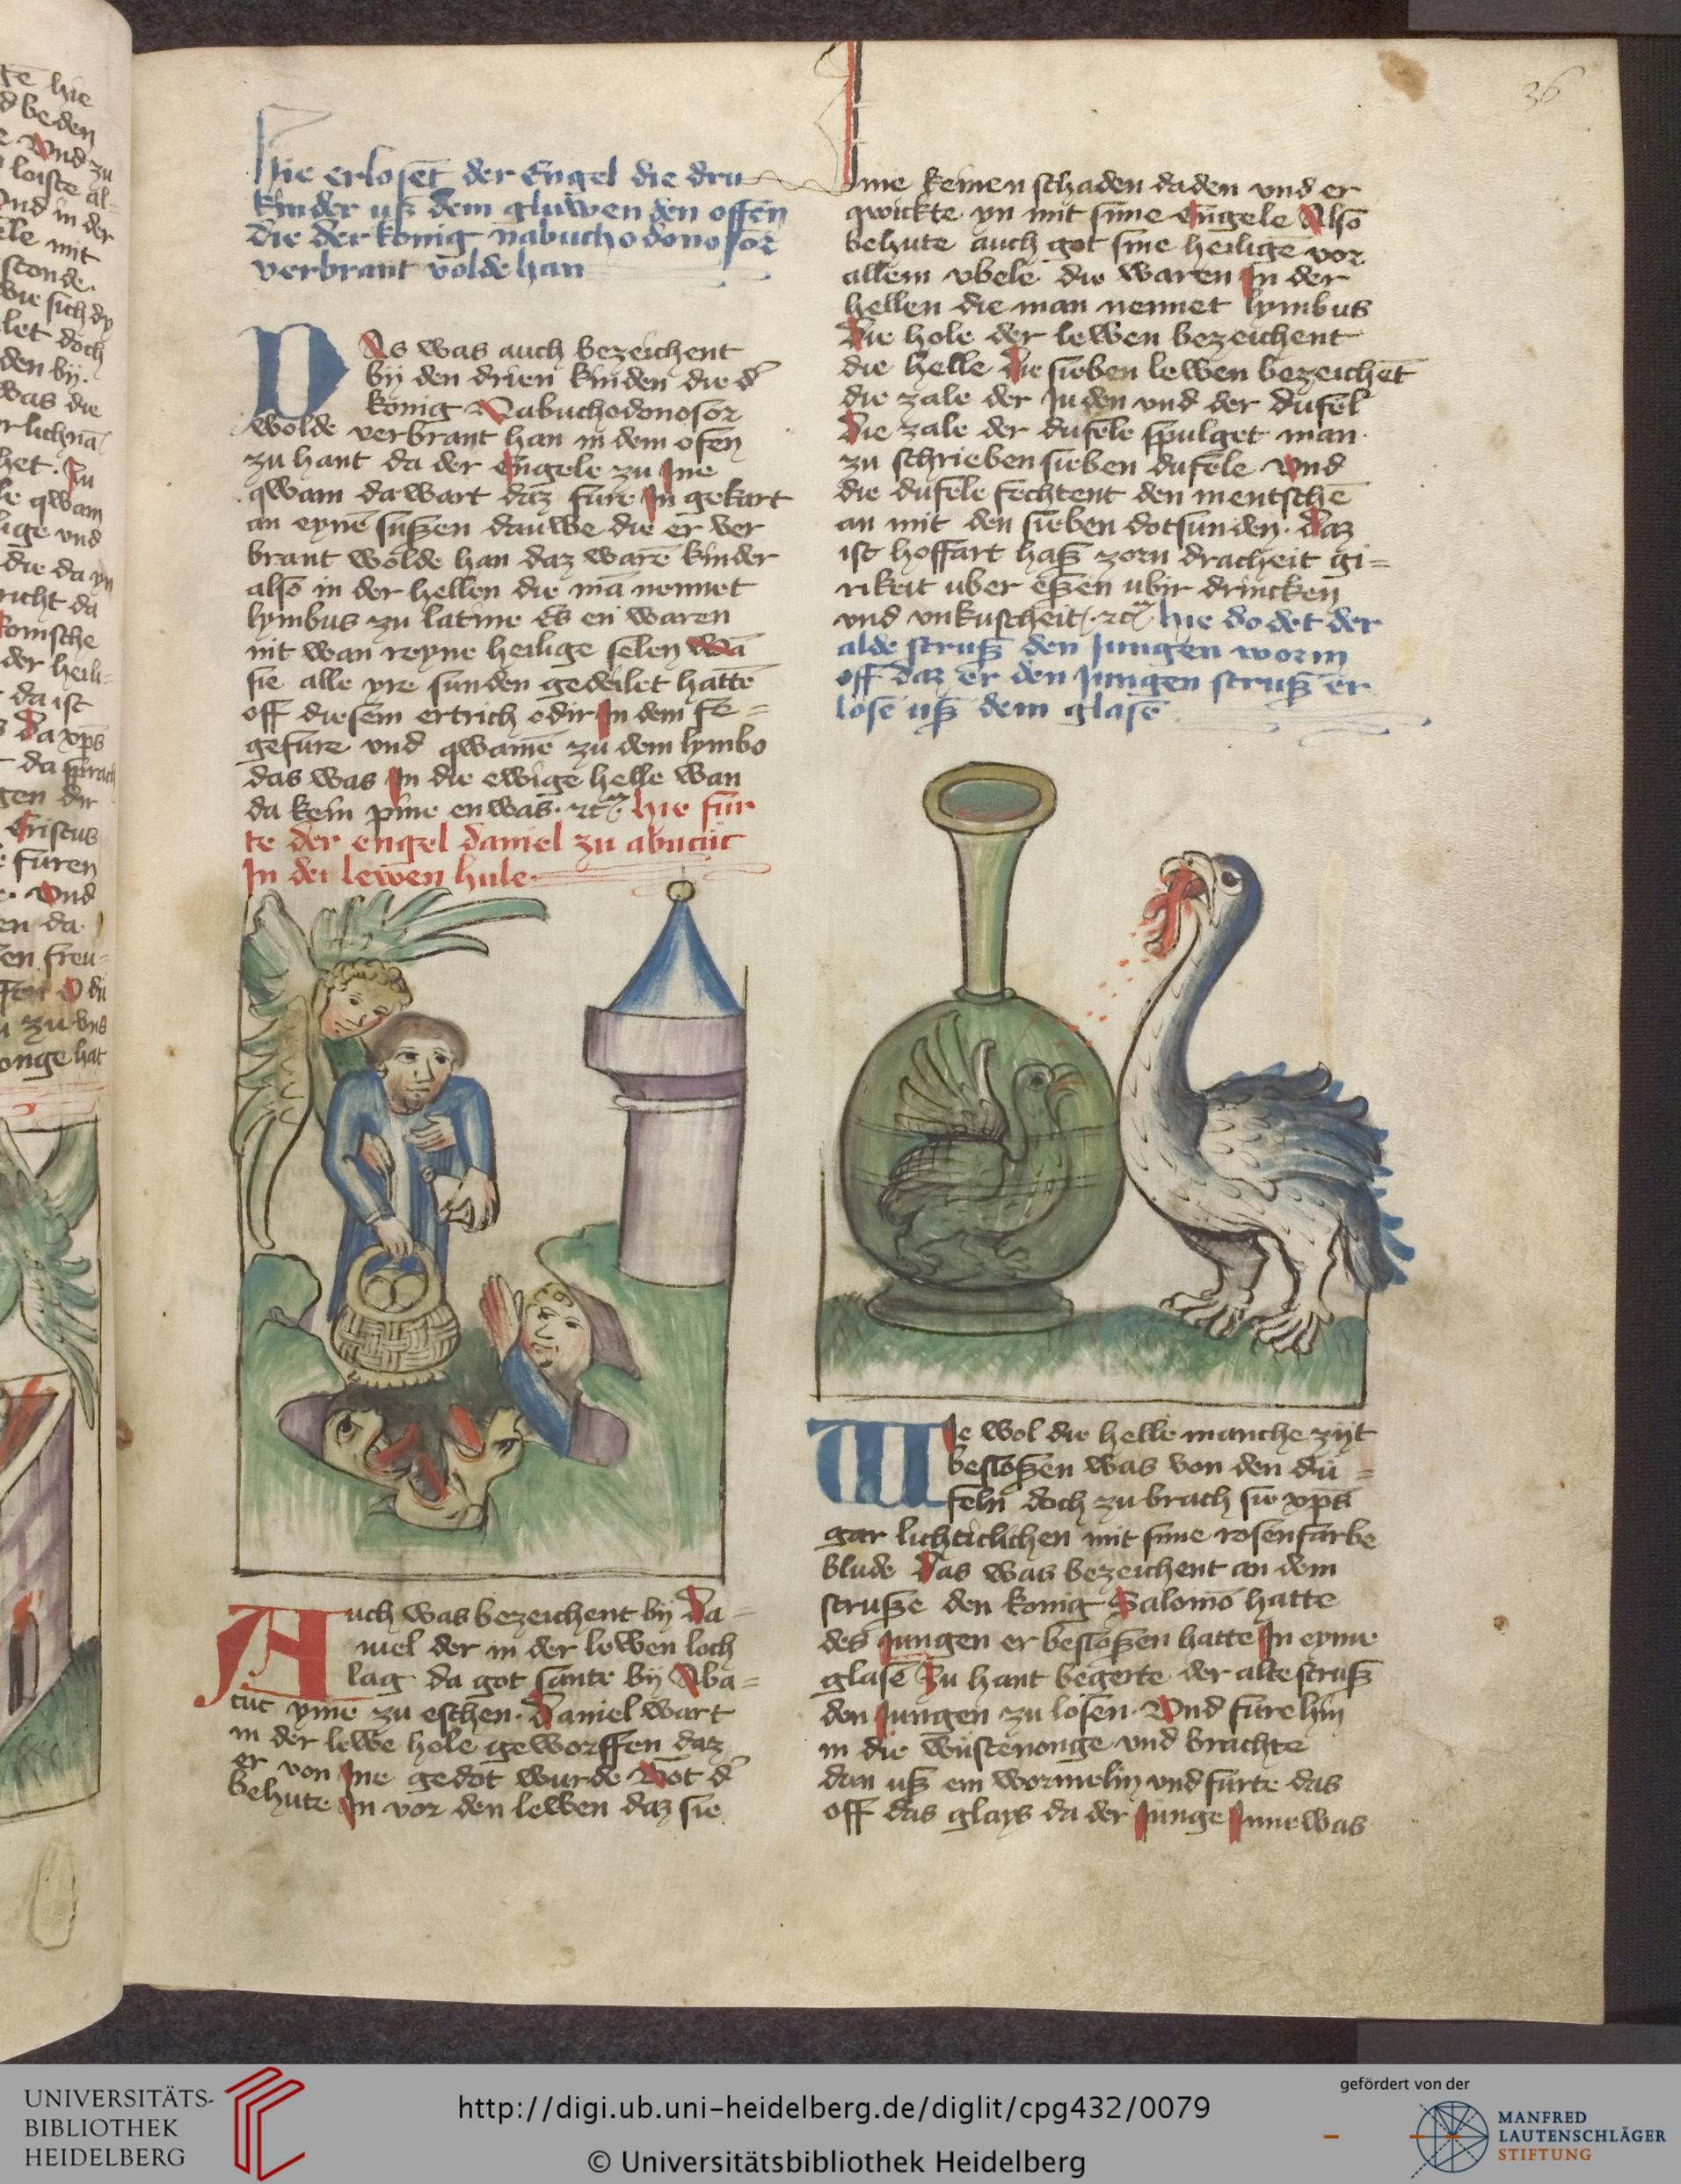 Hie erloset der Engel die dru
kinder uß dem gluwenden offen
die der konig nabuchodonosor
verbrant volde han
DAs was auch bezeichent
bij den drien kinden die d'
konig Nabuchodonosor
wolde verbrant han in dem ofen
zu hant da der Engele zu Ine
qwam da wart daz fure In gekart
an eynē sußen dauwe die er ver
brant wolde han daz warē kinder
also in der hellen die mā nennet
lymbus zu latine Es en waren
nit wan reyne heilige selen wā
sie alle yre sunden gedeilet hattē
off diesem ertrich odir In dem fe=
gefure und qwamē zu dem lymbo
das was In die ewige helle wan
da kein pine en was. ⁊c hie fur
te der engel daniel zu abacuc
In der lewen hule
Auch was bezeichent bij Da=
niel der in der lewen loch
lag da got sante bij Aba=
cuc yme zu eschen. Daniel wart
in der lewe hole geworffen daz
er von Ine gedot wurde Got d'
behute In vor den lewen daz sie
36
Ime keinen schaden daden vnd er
qwickte yn mit sime Engele Also
behute auch got sine heilige vor
allem vbele die waren In der
hellen die man nennet lymbus
Die hole der lewen bezeichent
die helle Die sieben lewen bezeichēt
die zale der Juden vnd der dufel
Die zale der dufele spulget man
zu schrieben sieben dufele Vnd
die dufele fechtent den mentschē
an mit den sieben dotsunden. Daz
ist hoffart haß zorn dracheit gi=
rikeit uber eßen ubir drincken
vnd vnkuscheit ⁊c hie dodet der
alde struß den Jungen worm
off daz er den Jungen struß er
lose uß dem glase
WIe wol die helle manche zijt
besloßen was von den du=
feln doch zubrach sie xp̄s
gar lichticlichen mit sime rosenfarbe
blude Das was bezeichent an dem
struße den konig Salomō hatte
des Jungen er besloßen hatte In eyme
glase Zu hant begerte der alte struß
den Jungen zu losen. Vnd fure hin
in die wustenonge vnd brachte
dan uß ein wormelin vnd furte das
off das glays da der Junge Inne was
UNIVERSITÄTS-
BIBLIOTHEK
HEIDELBERG
http://digi.ub.uni-heidelberg.de/diglit/cpg432/0079
© Universitätsbibliothek Heidelberg
gefördert von der
MANFRED
LAUTENSCHLÄGER
STIFTUNG